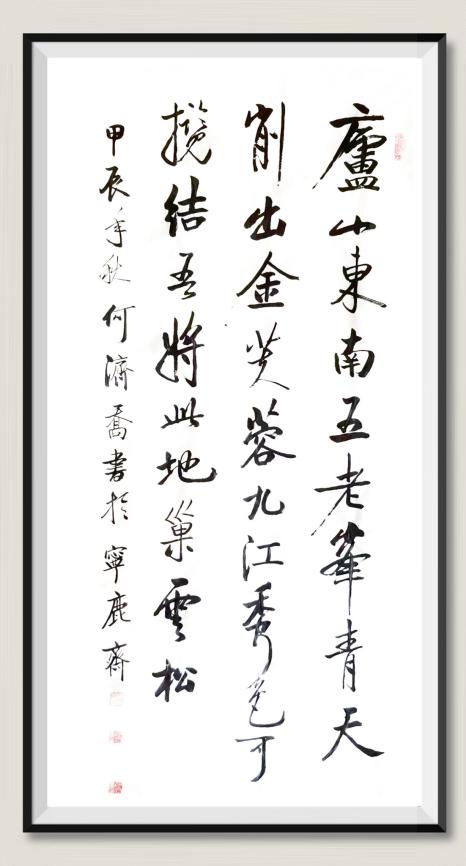 廬山東南五老峯青天
削出金芙蓉九江秀色可
攬結吾將此地巢雲松
甲辰年秋何濟喬書於寧鹿齋